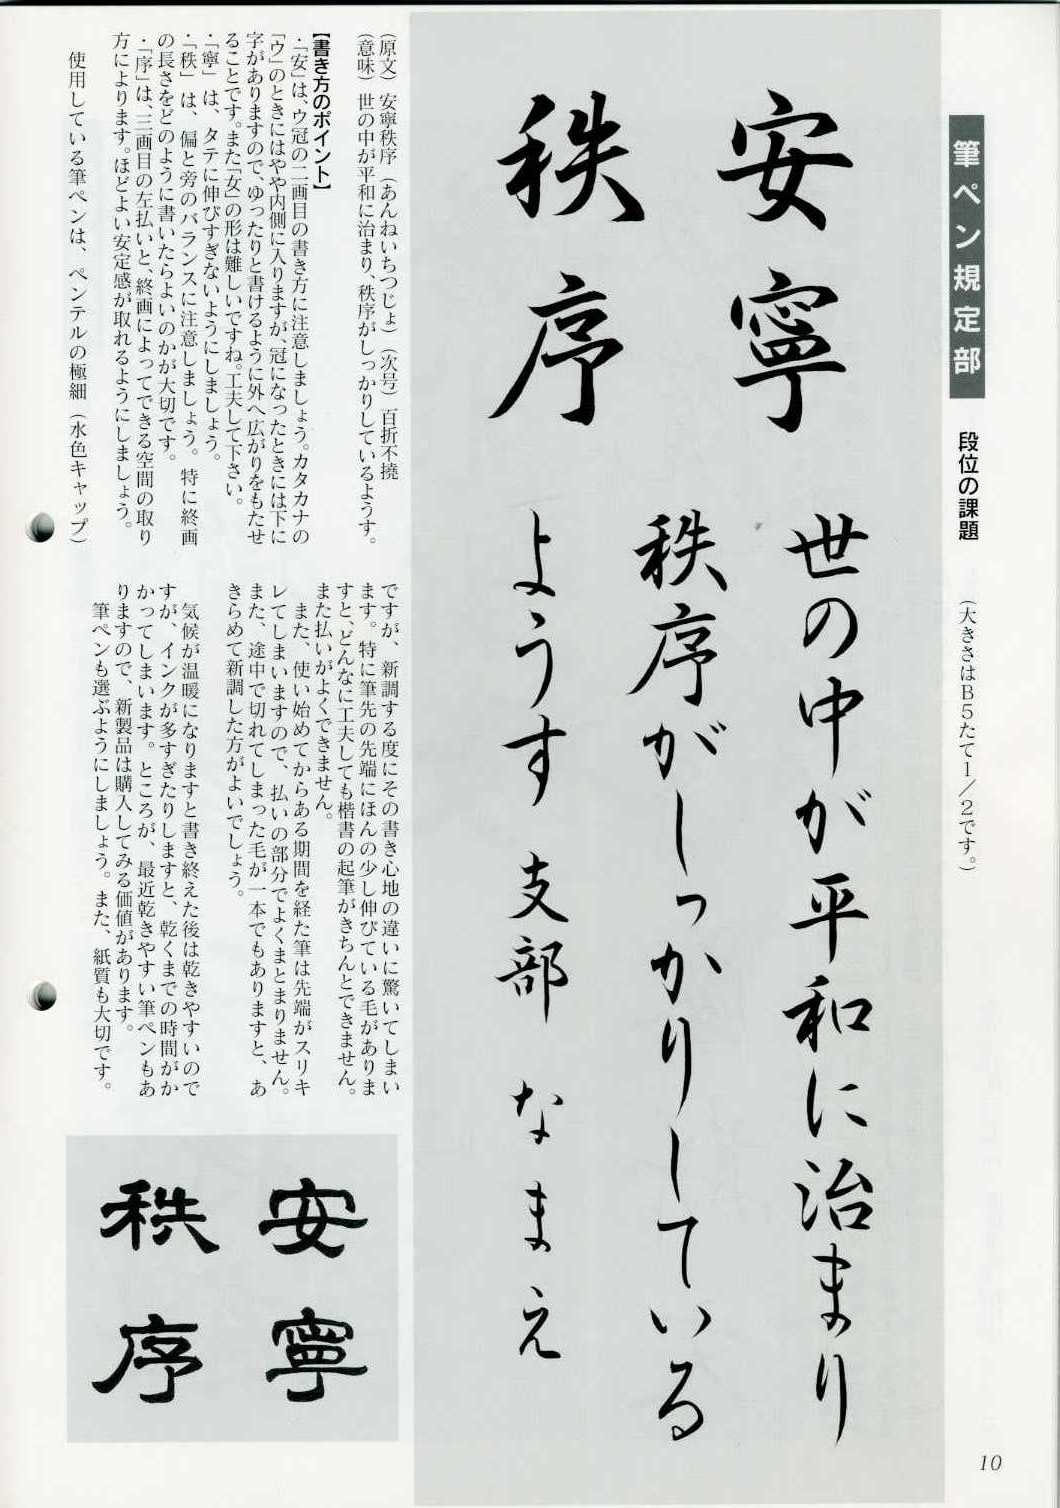 筆ペン規定部
段位の課題
（大きさはB5たて1／2です。）
安寧
秩序
世の中が平和に治まり
秩序がしっかりしている
ようす 支部 なまえ
（原文）安寧秩序（あんねいちつじょ）（次号）百折不撓
（意味）世の中が平和に治まり、秩序がしっかりしているようす。
【書き方のポイント】
・「安」は、ウ冠の二画目の書き方に注意しましょう。カタカナの
「ウ」のときにはやや内側に入りますが、冠になったときには下に
字がありますので、ゆったりと書けるように外へ広がりをもたせ
ることです。また「女」の形は難しいですね。工夫して下さい。
・「寧」は、タテに伸びすぎないようにしましょう。
・「秩」は、偏と旁のバランスに注意しましょう。特に終画
の長さをどのように書いたらよいのかが大切です。
・「序」は、三画目の左払いと、終画によってできる空間の取り
方によります。ほどよい安定感が取れるようにしましょう。
使用している筆ペンは、ペンテルの極細（水色キャップ）
ですが、新調する度にその書き心地の違いに驚いてしまい
ます。特に筆先の先端にほんの少し伸びている毛がありま
すと、どんなに工夫しても楷書の起筆がきちんとできません。
また払いがよくできません。
また、使い始めてからある期間を経た筆は先端がスリキ
レてしまいますので、払いの部分でよくまとまりません。
また、途中で切れてしまった毛が一本でもありますと、あ
きらめて新調した方がよいでしょう。
気候が温暖になりますと書き終えた後は乾きやすいので
すが、インクが多すぎたりしますと、乾くまでの時間がか
かってしまいます。ところが、最近乾きやすい筆ペンもあ
りますので、新製品は購入してみる価値があります。
筆ペンも選ぶようにしましょう。また、紙質も大切です。
安寧
秩序
10